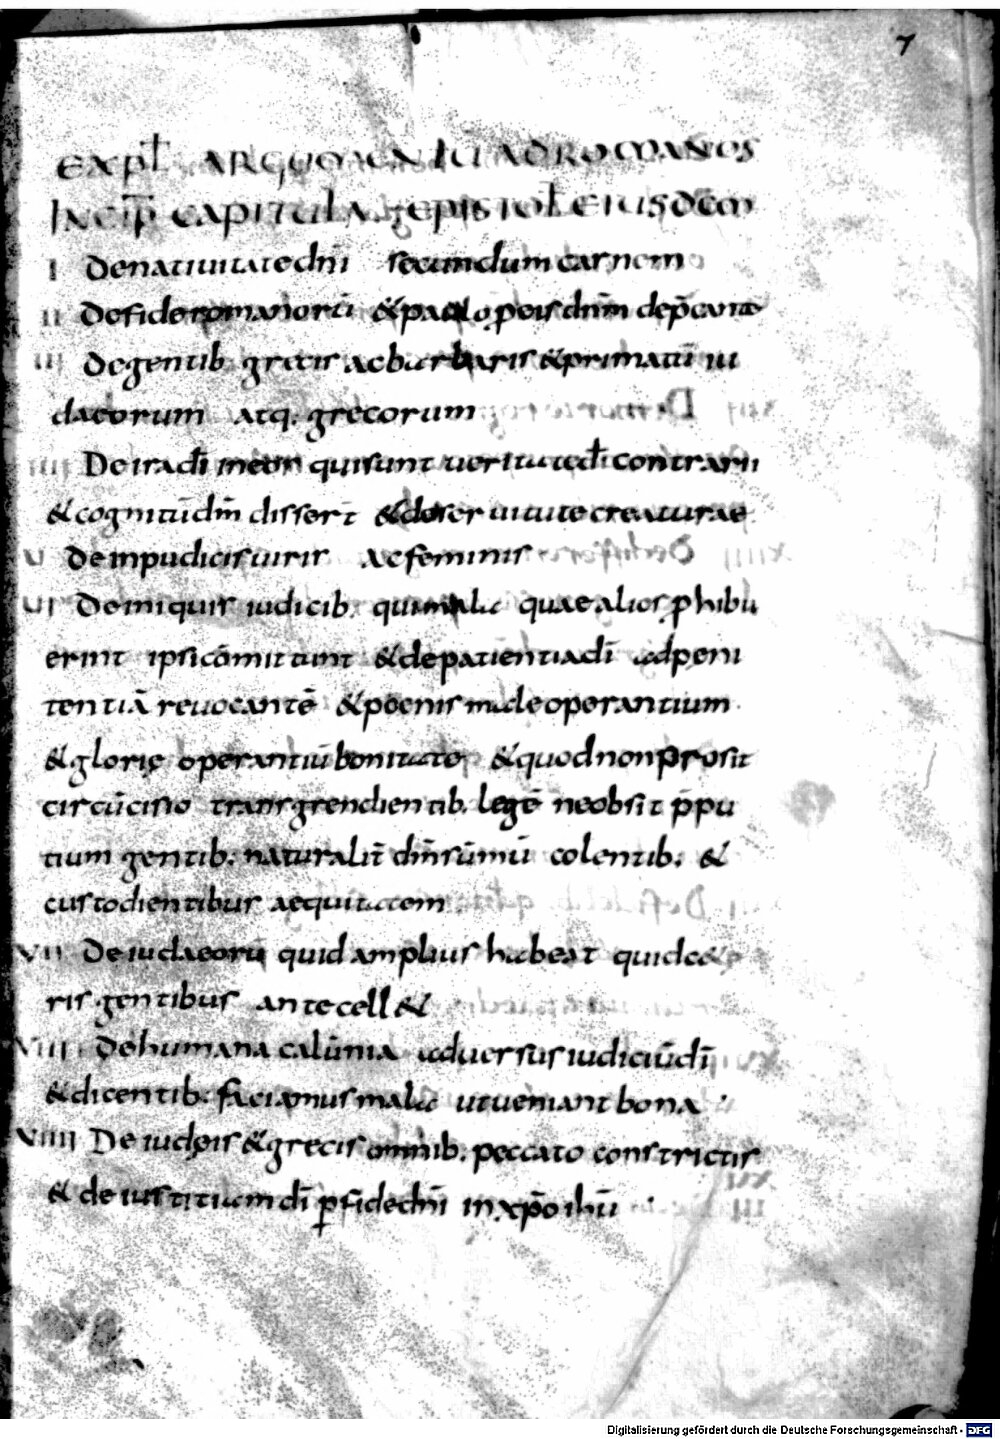 7
EXPL ARGUMENTU AD ROMANOS
INCIP CAPITULA EPISTOL EIUSDEM
I De natiuitate dn̄i secundum carnem
II De fide romanorū & paulo p eis dn̄m dep̄cante
III De gentib grecis ac barbaris & primatū iu
daeorum atq. grecorum
IIII De ira dī in eos qui sunt ueritate dī contrarii
& cognitū dm̄ disser̄t & deseruiute creaturae
V De inpudicis uiris ac feminis
VI De iniquis iudicib. qui mala quae alios p̄hibu
erint ipsi cōmittunt & de patientia dī ad peni
tentiā reuocantē & poenis male operantium
& glorię operantiū bonitate & quod non prosit
circūcisio transgrendientib. legē ne obsit p̄pu
tium gentib. naturalit̄ dm̄ sūmū colentib. &
custodientibus aequitatem
VII De iudaeorū quid amplius habeat quid cae
ris gentibus antecell&
VIII De humana calūnia aduersus iudiciū dī
& dicentib. faciamus mala ut ueniant bona
VIIII De iudęis & grecis omnib. peccato constrictis
& de iustitiam dī p fide dn̄i in xp̄o ihū
Digitalisierung gefördert durch die Deutsche Forschungsgemeinschaft - DFG